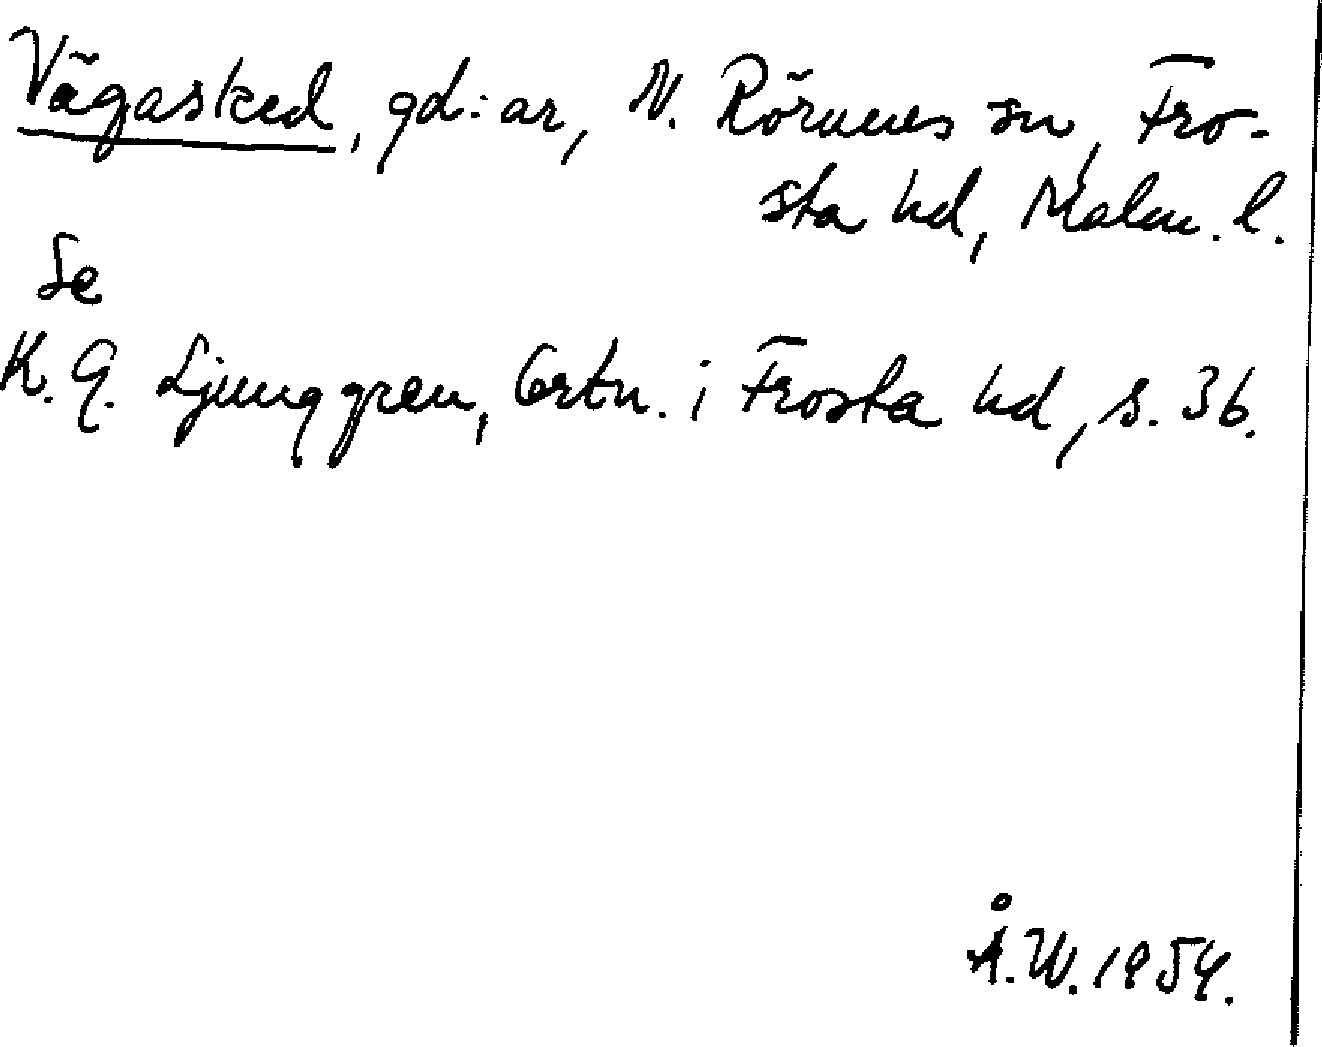 Vägasked, gd:ar, N. Rörums sn, Fro-
sta hd, Malm. l.
Se
K. G. Ljunggren, Ortn. i Frosta hd, s. 36.
Å.W. 1954.